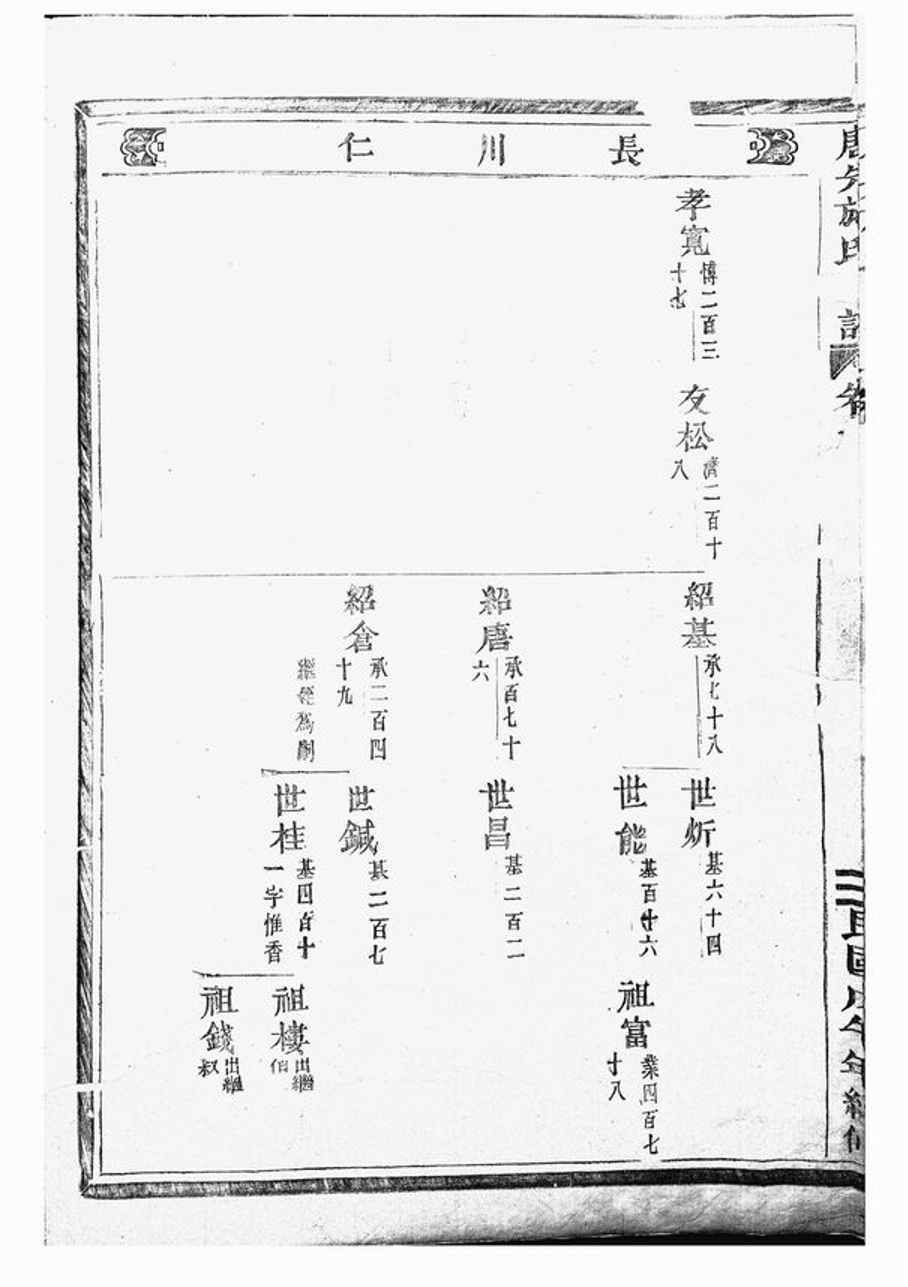 長川仁
孝寬
博二百三
十七
友松
濟二百十
八
紹基
承七十八
世炘
基六十四
世能
基百廿六
祖富
業四百七
十八
紹唐
承百七十
六
世昌
基二百二
紹倉
承二百四
十九
繼
爲嗣
世鍼
基二百七
世桂
基四百十
一字惟香
祖樓
出繼
伯
祖錢
出繼
叔
施氏
卷
民國
午年